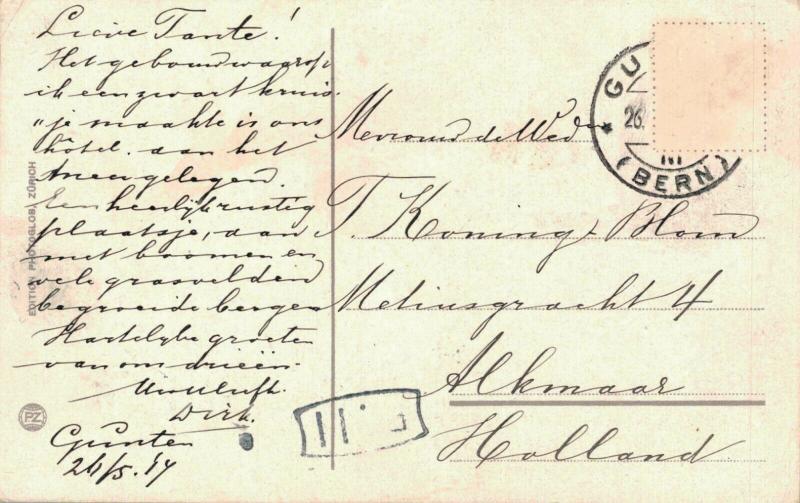 Lieve Tante!
Het gebouw waarop
ik een zwart kruis-
"je maakte is ons
hôtel. aan het
meer gelegen.
Een heerlijk rustig
plaatsje, aan
met boomen en
vele grasvelden
begroeide bergen
Hartelijke groeten
van ons drieën
Dirk.
Gunten
26/5.'14
Mevrouw de Wed
T. Koning-Blom
Metiusgracht 4
Alkmaar
Holland
GU
26.
III
(BERN)
EDITION PHOTOGLOB, ZÜRICH
PZ